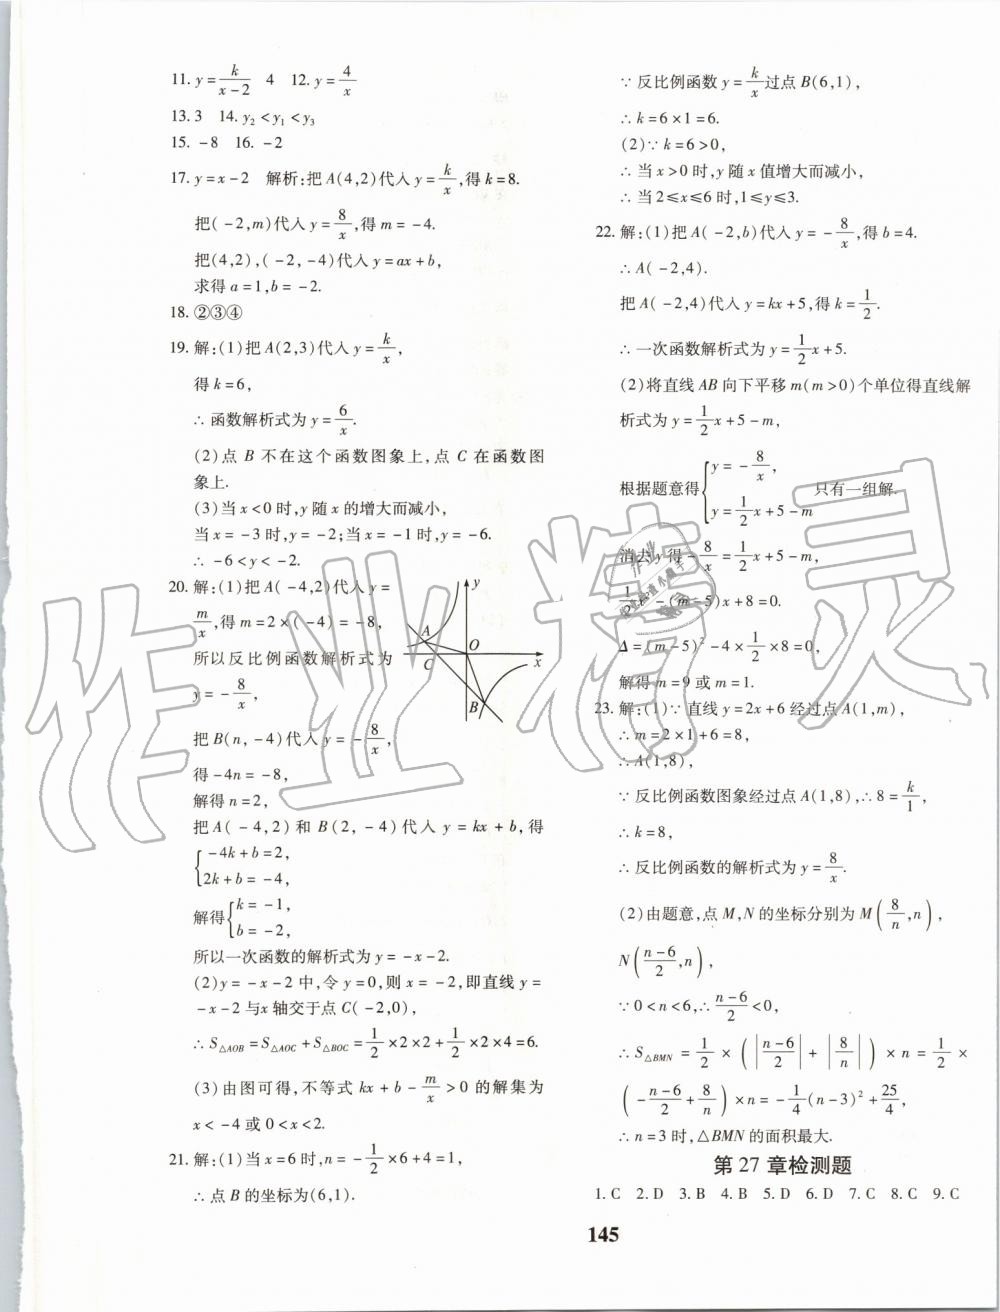 11. y = k/(x-2)　4　12. y = 4/x
13. 3　14. y₂ < y₁ < y₃
15. -8　16. -2
17. y = x - 2　解析:把 A(4,2)代入 y = k/x,得 k = 8.
把(-2,m)代入 y = 8/x,得 m = -4.
把(4,2),(-2,-4)代入 y = ax + b,
求得 a = 1,b = -2.
18. ②③④
19. 解:(1)把 A(2,3)代入 y = k/x,
得 k = 6,
∴ 函数解析式为 y = 6/x.
(2)点 B 不在这个函数图象上,点 C 在函数图
象上.
(3)当 x < 0 时,y 随 x 的增大而减小,
当 x = -3 时,y = -2;当 x = -1 时,y = -6.
∴ -6 < y < -2.
20. 解:(1)把 A(-4,2)代入 y =
m/x,得 m = 2×(-4) = -8,
所以反比例函数解析式为
y = -8/x,
y
A
O
C
x
B
把 B(n,-4)代入 y = -8/x,
得 -4n = -8,
解得 n = 2,
把 A(-4,2)和 B(2,-4)代入 y = kx + b,得
{-4k + b = 2,
2k + b = -4,
解得{k = -1,
b = -2,
所以一次函数的解析式为 y = -x - 2.
(2)y = -x - 2 中,令 y = 0,则 x = -2,即直线 y =
-x - 2 与 x 轴交于点 C(-2,0),
∴ S△AOB = S△AOC + S△BOC = 1/2 × 2 × 2 + 1/2 × 2 × 4 = 6.
(3)由图可得,不等式 kx + b - m/x > 0 的解集为
x < -4 或 0 < x < 2.
21. 解:(1)当 x = 6 时,n = -1/2 × 6 + 4 = 1,
∴ 点 B 的坐标为(6,1).
∵ 反比例函数 y = k/x 过点 B(6,1),
∴ k = 6 × 1 = 6.
(2)∵ k = 6 > 0,
∴ 当 x > 0 时,y 随 x 值增大而减小,
∴ 当 2 ≤ x ≤ 6 时,1 ≤ y ≤ 3.
22. 解:(1)把 A(-2,b)代入 y = -8/x,得 b = 4.
∴ A(-2,4).
把 A(-2,4)代入 y = kx + 5,得 k = 1/2.
∴ 一次函数解析式为 y = 1/2x + 5.
(2)将直线 AB 向下平移 m(m > 0)个单位得直线解
析式为 y = 1/2x + 5 - m,
根据题意得{y = -8/x,
y = 1/2x + 5 - m
只有一组解.
消去 y 得 -8/x = 1/2x + 5 - m,
1/2x² - (m - 5)x + 8 = 0.
Δ = (m - 5)² - 4 × 1/2 × 8 = 0,
解得 m = 9 或 m = 1.
23. 解:(1)∵ 直线 y = 2x + 6 经过点 A(1,m),
∴ m = 2 × 1 + 6 = 8,
∴ A(1,8),
∵ 反比例函数图象经过点 A(1,8),∴ 8 = k/1,
∴ k = 8,
∴ 反比例函数的解析式为 y = 8/x.
(2)由题意,点 M,N 的坐标分别为 M(8/n,n),
N((n-6)/2,n),
∵ 0 < n < 6,∴ (n-6)/2 < 0,
∴ S△BMN = 1/2 × (|(n-6)/2| + |8/n|) × n = 1/2 ×
(-(n-6)/2 + 8/n) × n = -1/4(n-3)² + 25/4,
∴ n = 3 时,△BMN 的面积最大.
第 27 章检测题
1. C　2. D　3. B　4. B　5. D　6. D　7. C　8. C　9. C
145
作业精灵